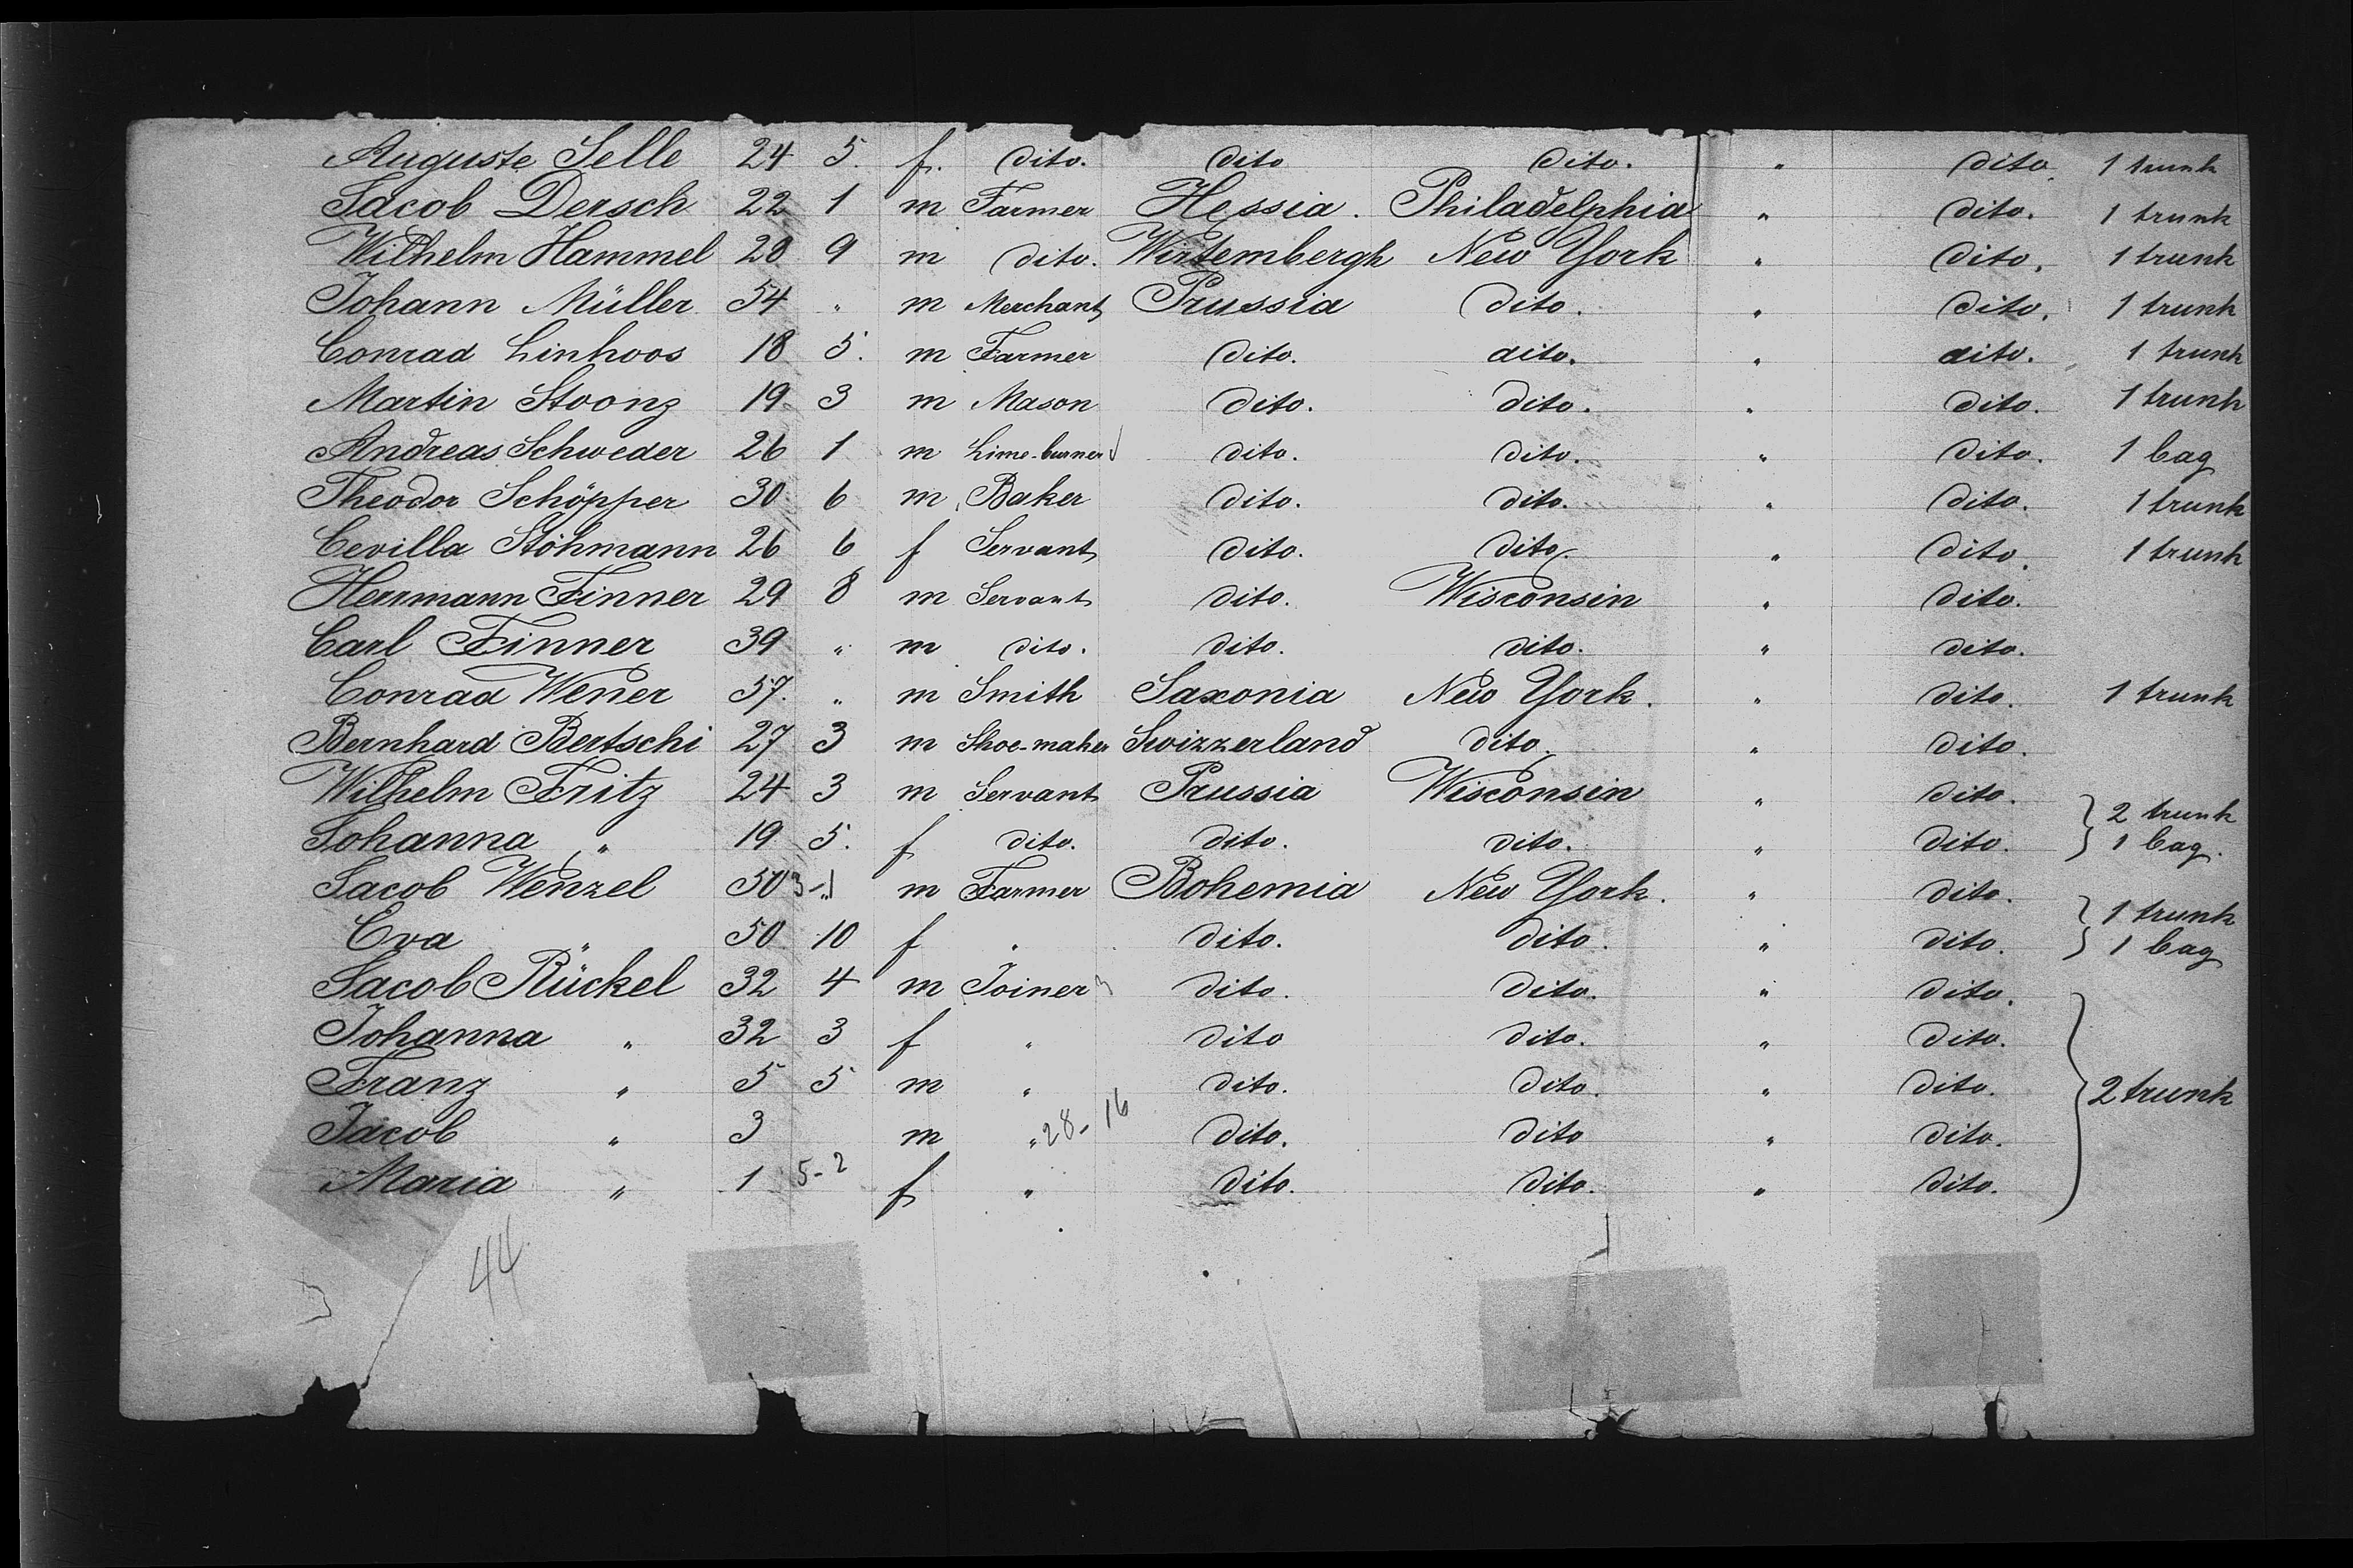 Auguste Selle 24 5. f. dito. dito dito. " dito. 1 trunk
Jacob Dersch 22 1 m Farmer Hessia. Philadelphia " dito. 1 trunk
Wilhelm Hammel 28 9 m dito. Wirtembergh New York " dito. 1 trunk
Johann Müller 54 " m Merchant Prussia dito. " dito. 1 trunk
Conrad Linhoos 18 5. m Farmer dito. dito. " dito. 1 trunk
Martin Stoonz 19 3 m Mason dito. dito. " dito. 1 trunk
Andreas Schweder 26 1 m Lime-burner dito. dito. " dito. 1 bag
Theodor Schöpper 30 6 m Baker dito. dito. " dito. 1 trunk
Cevilla Stöhmann 26 6 f Servant dito. dito. " dito. 1 trunk
Herrmann Finner 29 8 m Servant dito. Wisconsin " dito.
Carl Finner 39 " m dito. dito. dito. " dito.
Conrad Wener 57. " m Smith Saxonia New York. " dito. 1 trunk
Bernhard Bertschi 27 3 m Shoe-maker Swizzerland dito. " dito.
Wilhelm Fritz 24 3 m Servant Prussia Wisconsin " dito. 2 trunk
Johanna " 19 5. f dito. dito. dito. " dito. 1 bag.
Jacob Wenzel 50 m Farmer Bohemia New York. " dito. 1 trunk
Eva " 50 10 f " dito. dito. " dito. 1 bag
Jacob Rückel 32 4 m Joiner dito. dito. " dito.
Johanna " 32 3 f " dito dito. " dito.
Franz " 5 5 m " dito. dito. " dito. 2 trunk
Jacob " 3 m " 28-16 dito. dito " dito.
Maria " 1 5-2 f " dito. dito. " dito.
44